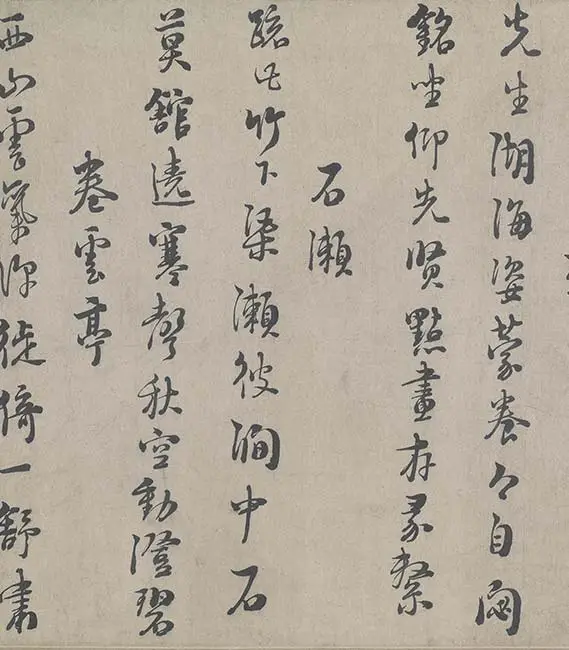 先生湖海姿蒙養今自閟
銘坐仰先賢點畫存彖繫
石瀨
疏此竹下渠瀨彼澗中石
莫館遶寒聲秋空動澄碧
卷雲亭
西山雲氣深徙倚一舒嘯